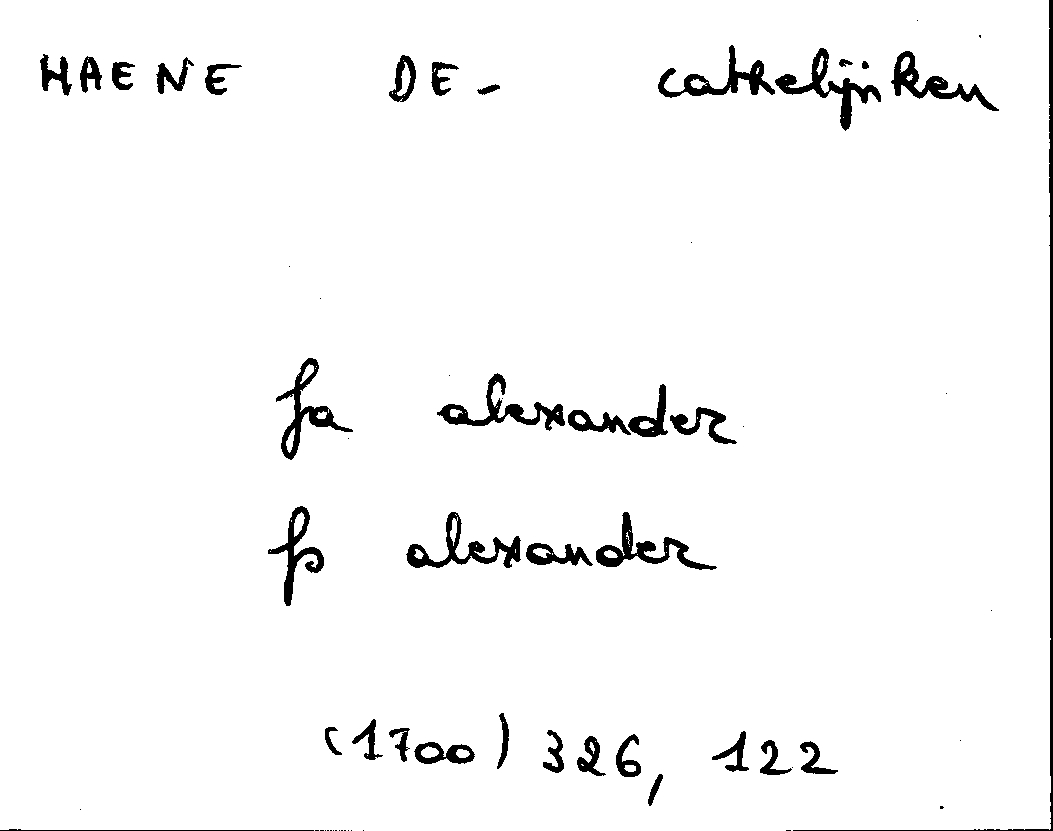 HAENE DE- cathelijnken
fa alexander
fs alexander
(1700) 326, 122